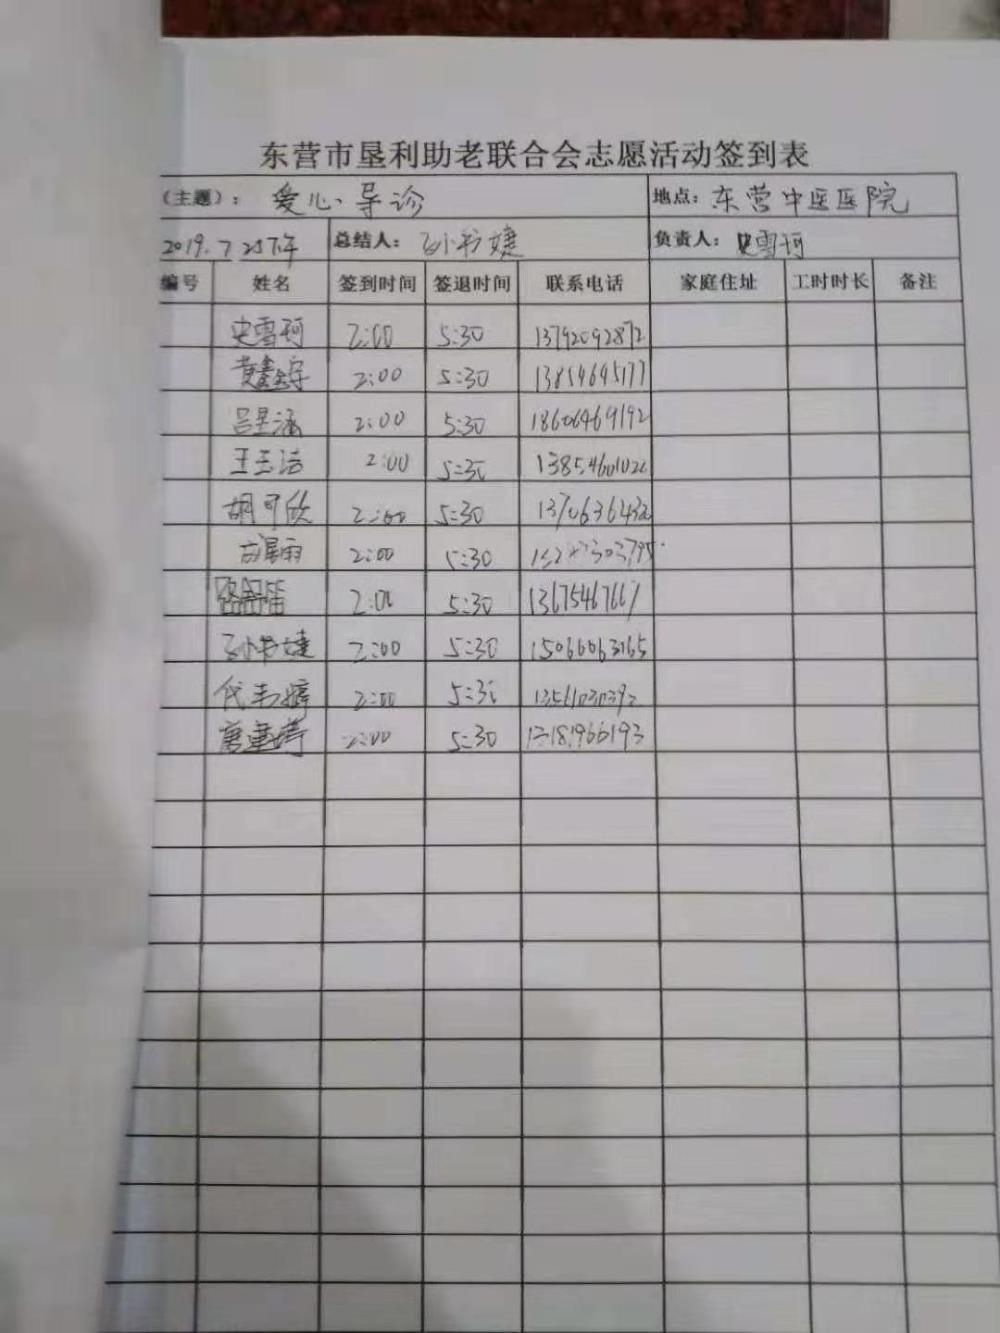 东营市垦利助老联合会志愿活动签到表
（主题）： 爱心导诊 地点： 东营中医医院
2019.7 下午 总结人： 孙书婕 负责人： 史雪珂
编号 姓名 签到时间 签退时间 联系电话 家庭住址 工时时长 备注
史雪珂 2:00 5:30 13792092872
黄鑫宇 2:00 5:30 13854645177
吕星涵 2:00 5:30 18606469192
王玉洁 2:00 5:30
胡可欣 2:00 5:30
2:00 5:30
2:00 5:30
孙书婕 2:00 5:30 15066063165
代韦婷 2:00 5:30
唐建婷 2:00 5:30